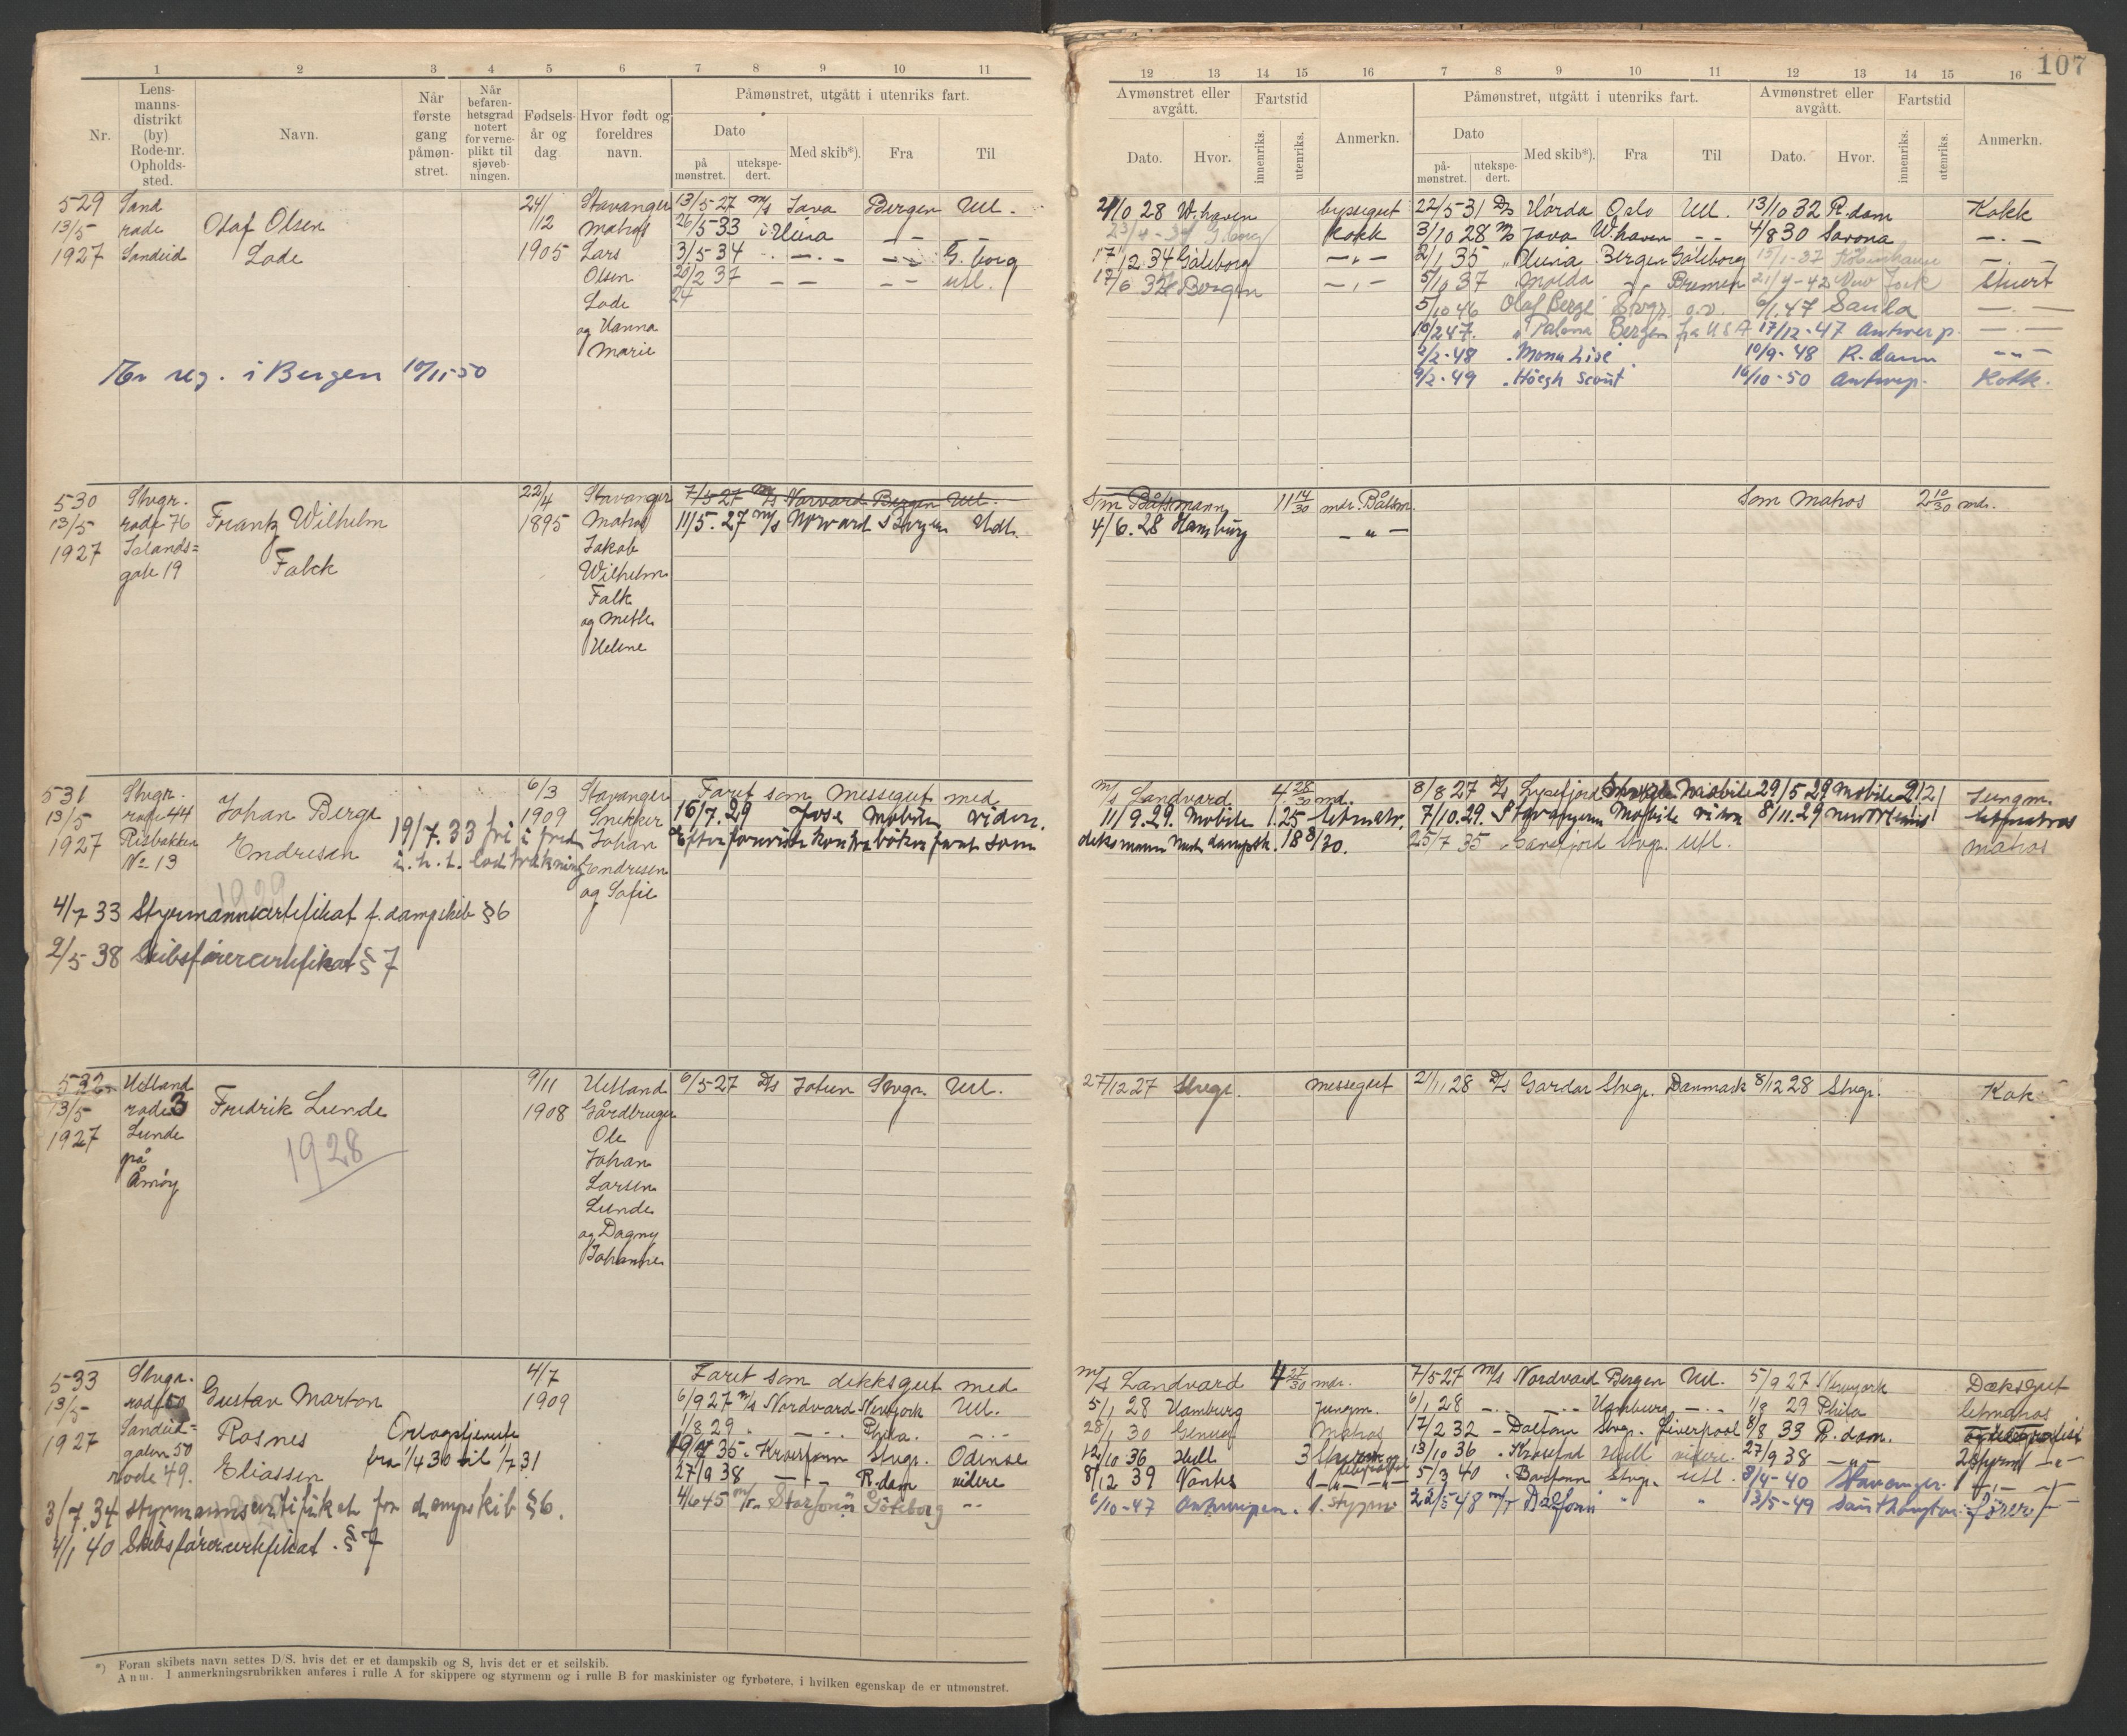 107
1 2 3 4 5 6 7 8 9 10 11
12 13 14 15 16 7 8 9 10 11 12 13 14 15 16
Nr.
Lens-
manns-
distrikt
(by)
Rode-nr.
Opholds-
sted.
Navn.
Når
første
gang
påmøn-
stret.
Når
befaren-
hetsgrad
notert
for verne-
plikt til
sjøveb-
ningen.
Fødsels-
år og
dag
Hvor født og
foreldres
navn.
Påmønstret, utgått i utenriks fart.
Dato
på
mønstret.
utekspe-
dert.
Med skib*).
Fra
Til
Avmønstret eller
avgått.
Dato.
Hvor.
Fartstid
innenriks.
utenriks.
Anmerkn.
Påmønstret, utgått i utenriks fart.
Dato
på-
mønstret.
utekspe-
dert.
Med skib*).
Fra
Til
Avmønstret eller
avgått.
Dato.
Hvor.
Fartstid
innenriks.
utenriks.
Anmerkn.
529
13/5
1927
Sand
rode
Sandeid
Olaf Olsen
Lode
24/
12
1905
Stavanger
Matros
Lars
Olsen
Lode
og Hanna
Marie
13/5-27 m/s Java Bergen Utl.
26/5-33
3/5 34 - . — . - G.borg
20/2 37 — — — utl.
24
Er reg. i Bergen 10/11-50
28 W.haven byssegut
Kokk
17/12 34 Göteborg — " —
Bergen — , —
22/5-31 D/s Hörda Oslo Utl. 13/10 32 R.dam Kokk
3/10 28 m/s Java W.haven - - 4/8 30 Savona — . —
2/1 35 Bergen Göteborg
5/10 37 Molda Bremen 21/4-42 New York Stuert
5/10 46 Olaf Bergh Svgr. 6/1 47
10/2 47. Bergen fra USA 17/12-47 Antwerp.
2/2-48 . Mona Lise 10/9-48 R.dam — " —
9/2-49 . Höegh Scout 16/10-50 Antwerp. Kokk.
530
13/5
1927
Stvgr.
rode 76
gate 19
Frantz Wilhelm
Falck
22/4
1895
Stavanger
Matros
Jakob
Wilhelm
Falk
og Mette
Helene
7/5 27 m/s Norvard Bergen Utl.
11/5. 27 m/s Norvard Bergen Utl.
Som Båtsmann 11 14/30 mdr. Båtsm.
4/6. 28 Hamburg — " —
Som Matros 2 10/30 mdr.
531
13/5
1927
Stvgr.
rode 44
Risbakken
№ 13
Johan Berge
Endresen
19/7. 33 fri i fred
i. h. t. lodtrekning
6/3
1909
Stavanger
Snekker
Johan
Endresen
og Sofie
Faret som Messegut med
16/7. 29 Mobile videre.
Efter foreviste kontrabøker faret som
4/7 33 Styrmannscertifikat f. dampskib §6
9/5-38 Skibsførercertifikat §7
1929
m/s Landvard 4 28/30 md.
11/9. 29. Mobile 1. 25 letmatr.
deksmann med dampsk. 18 8/30.
8/8 27 D/s Lysefjord Mobile 29/5 29 Mobile 21 Jungm.
7/10. 29. Mobile 8/11. 29 letmatros
25/7 35 Stvgr. Utl. Matros
532
13/5
1927
Hetland
rode 3
Lunde
på
Åmøy
Fredrik Lunde
1928
9/11
1908
Hetland
Gårdbruger
Ole
Johan
Larsen
Lunde
og Dagny
Johanne
6/5-27 D/s Jotun Stvgr. Utl.
27/12 27 Stvgr. Messegut
21/1 28 D/s Gardar Stvgr. Danmark 8/12 28 Stvgr. Kok
533
13/5
1927
Stvgr.
rode 50
Sandeid-
gaten 50
rode 49.
Gustav Marton
Rosnes
Eliassen
Orlogstjeneste
fra 1/4 30 til 1/7 31
4/7
1909
Faret som dekksgut med
6/9 27 m/s Nordvard Newyork Utl.
1/8 29 . — . — Phila. — . . —
19/7 35 . Stvgr. Odense
27/9 38 — " — R.dam videre
4/6 45 m/s Storfonn Göteborg - -
3/7. 34 styrmannscertifikat for dampskib §6.
4/1 40 Skibsførercertifikat. §7
m/s Landvard 4 27/30 mdr.
5/1 28 Hamburg Jungm.
28/1 30 Genua Matros
12/10 36 Hull
8/12 39 Nantes
6/10-47 Antwerpen. 1. styrm
7/5 27 m/s Nordvard Bergen Utl. 5/9 27 Newyork Dæksgut
6/1 28 — . . — Hamburg — . . — 1/8 29 Phila letmatros
17/2 32 - Dalfonn Stvgr. Liverpool 8/8 33 R.dam.
13/10 36 Hull videre 27/9 38 — " — 2 styrm — " —
5/3 40 Stvgr. Utl. 8/4-40 Stavanger.
22/5 48 m/T Dalfonn 13/5-49 fører
*) Foran skibets navn settes D/S. hvis det er et dampskib og S, hvis det er et seilskib.
Anm. I anmerkningsrubrikken anføres i rulle A for skippere og styrmenn og i rulle B for maskinister og fyrbøtere, i hvilken egenskap de er utmønstret.